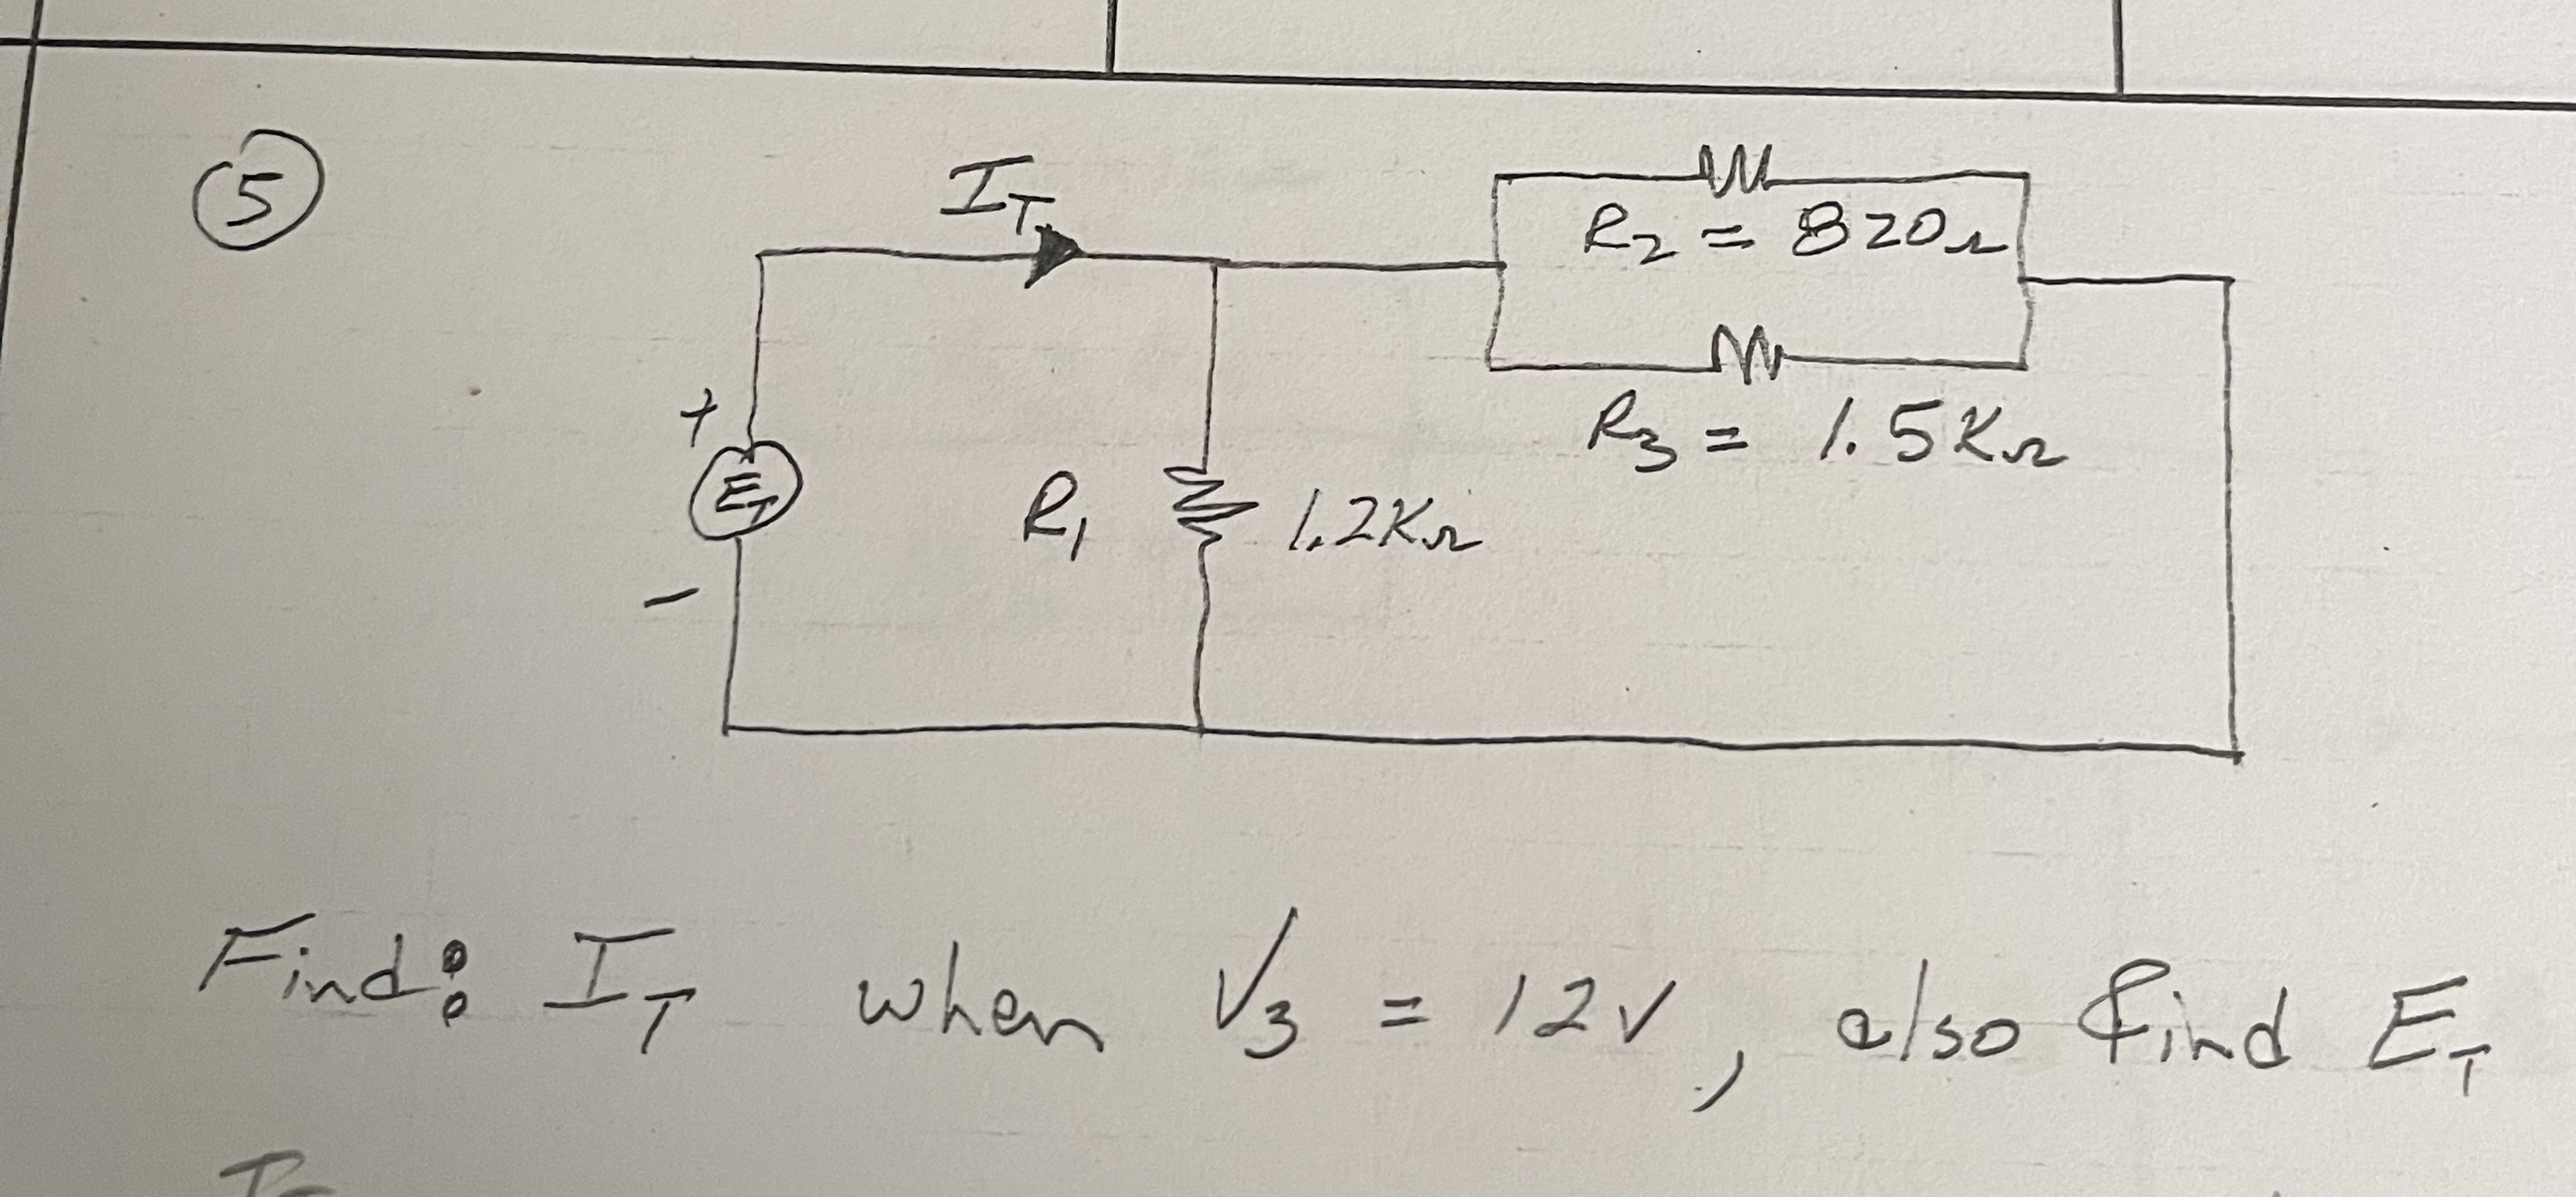 5
I_T
R2 = 820Ω
+
R3 = 1.5KΩ
E_T
R1 1.2KΩ
-
Find: I_T when V3 = 12V, also find E_T